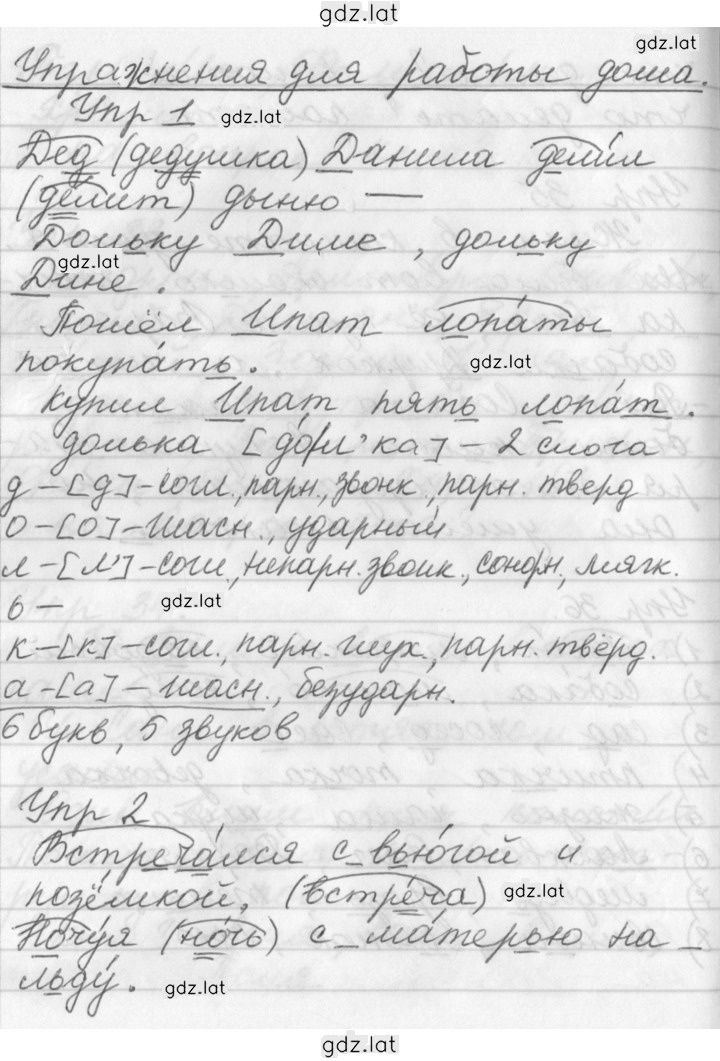 gdz.lat
gdz.lat
Упражнения для работы дома.
Упр 1 gdz.lat
Дед (дедушка) Данила делил
(делит) дыню —
Дольку Диме, дольку
gdz.lat
Дине.
Пошёл Ипат лопа́ты
покупа́ть. gdz.lat
купил Ипат пять лопа́т.
долька [до́л'ка] - 2 слога
д - [д] - согл., парн., звонк., парн. тверд
о - [о] - гласн., ударный
л - [л'] - согл., непарн. звонк., сонорн, мягк.
ь — gdz.lat
к - [к] - согл., парн. глух., парн. твёрд.
а - [а] - гласн., безударн.
6 букв, 5 звуков
Упр 2
Встреча́лся с вью́гой и
позёмкой, (встре́ча) gdz.lat
Ночу́я (но́чь) с ма́терью на
льду́. gdz.lat
gdz.lat